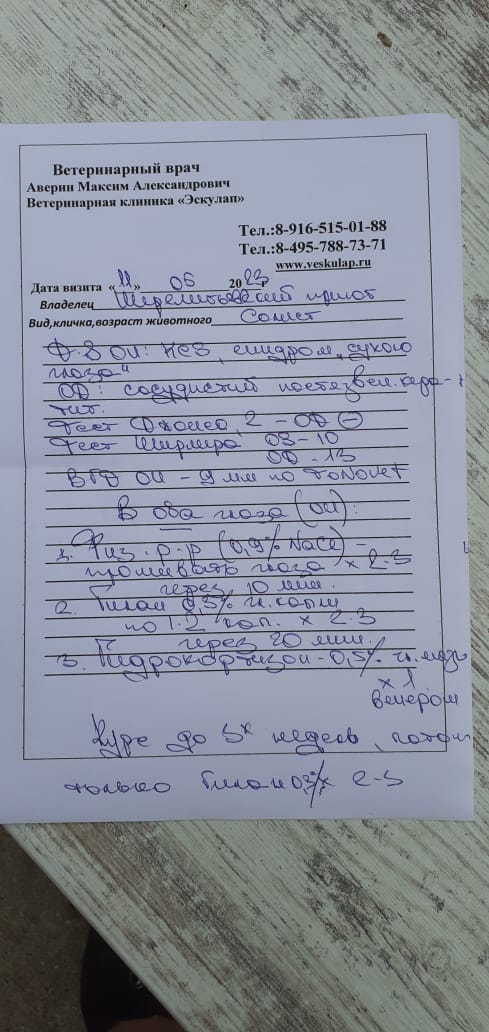 Ветеринарный врач
Аверин Максим Александрович
Ветеринарная клиника «Эскулап»
Тел.:8-916-515-01-88
Тел.:8-495-788-73-71
www.veskulap.ru
Дата визита «11» 05 2023 г
Владелец приют
Вид,кличка,возраст животного
D.S OU: синдром „сухого
глаза"
OD: сосудистый постязвен. кера-
тит.
Тест Джонса 2 – OD ⊖
Тест Ширмера OS – 10
OD – 13
ВГД OU – 9 мм по TonoVet
В оба глаза (OU):
1. Физ. р-р (0,9% NaCl) –
промывать глаза x 2-3
через 10 мин.
2. Гилан гл. капли
по 1-2 кап. x 2-3
через 20 мин.
3. Гидрокортизон – 0,5% гл. мазь
x 1
вечером
Курс до недель, потом
только Гилан 2-3